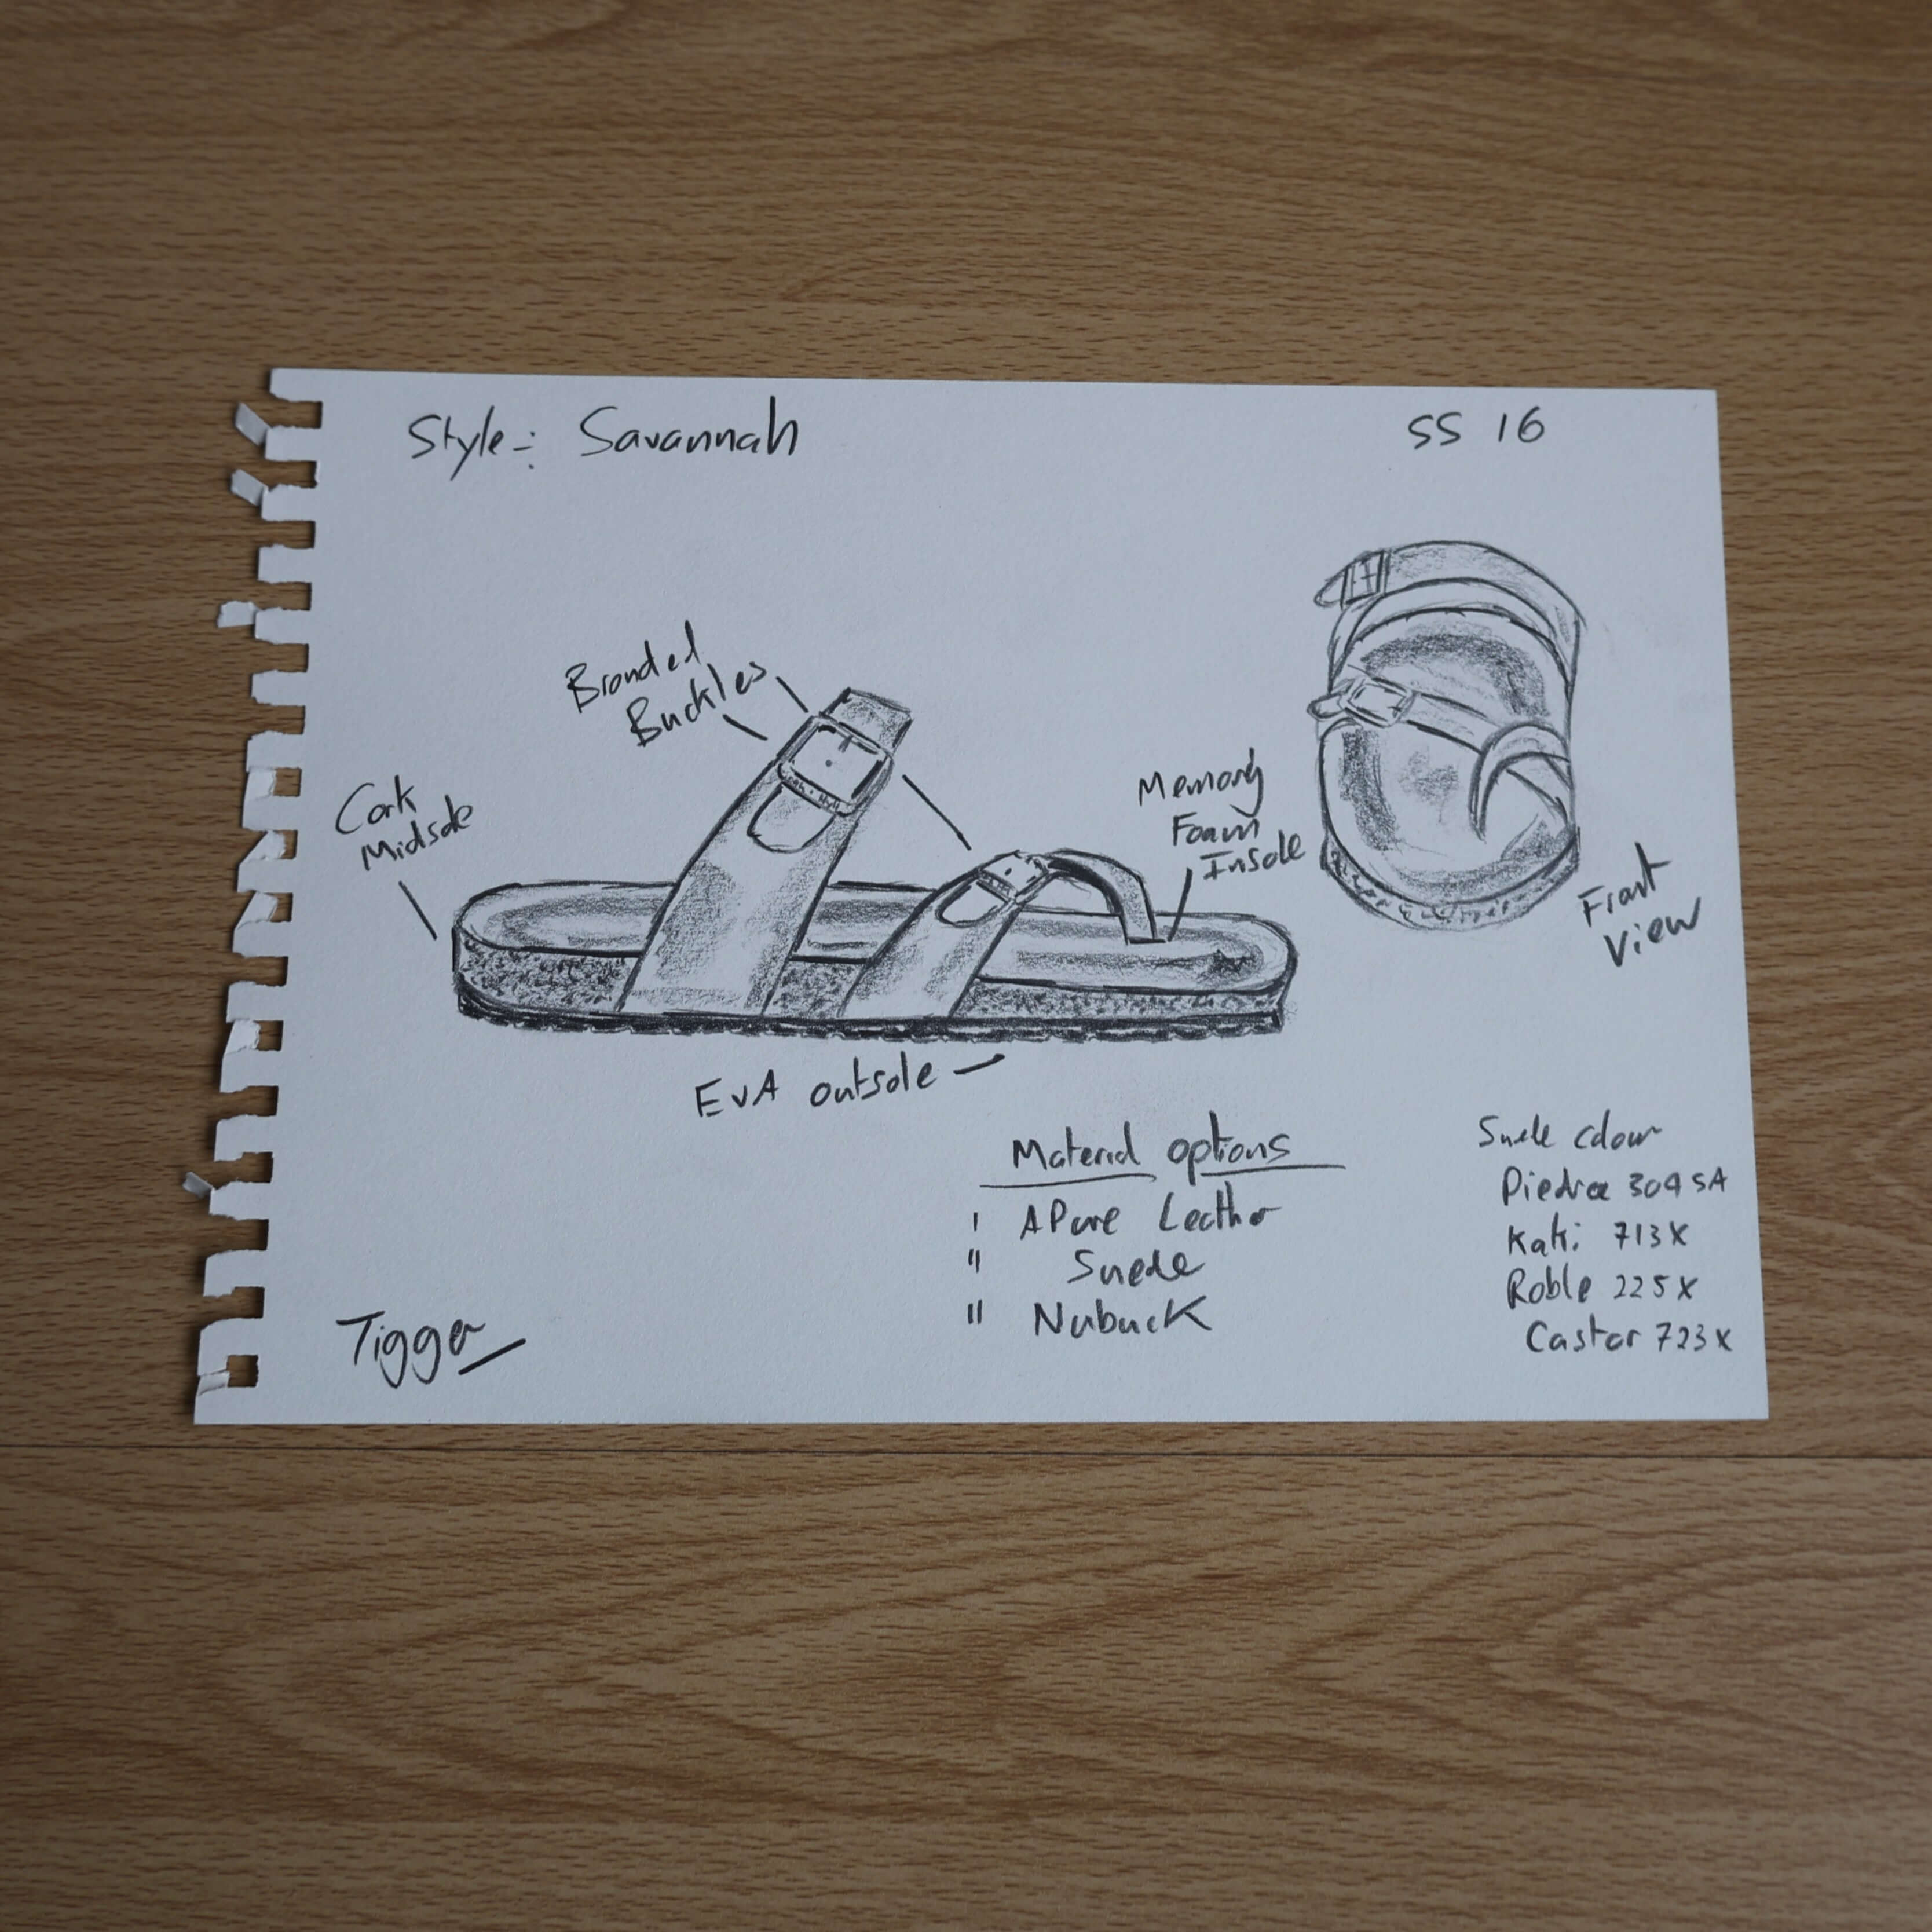 Style-: Savannah
SS 16
Branded
Buckles
Cork
Midsole
Memory
Foam
Insole
Front
View
EVA outsole
Material options
Suede colour
1 A Pure Leather
" Suede
" Nubuck
Piedra 3045A
Kaki 713X
Roble 225X
Castor 723X
Tigger